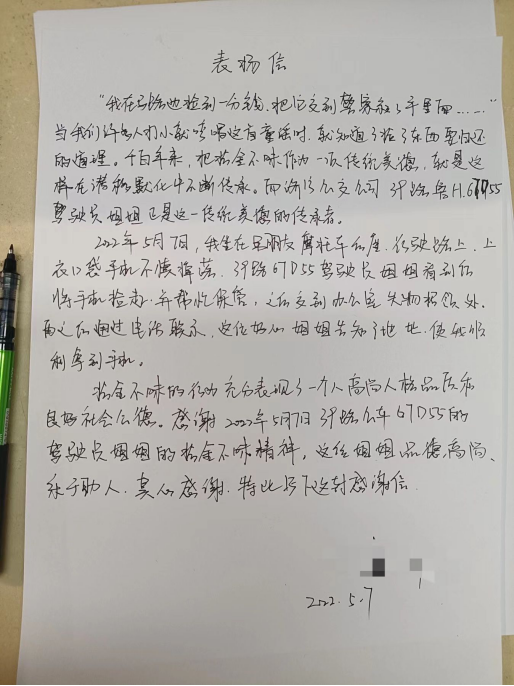 表扬信
“我在马路边捡到一分钱,把它交到警察叔叔手里面……”
当我们许多人打小就哼唱这首童谣时,就知道了捡了东西要归还
的道理。千百年来,把拾金不昧作为一项传统美德,就是这
样在潜移默化中不断传承。而济宁公交公司39路鲁H.67D55
驾驶员姐姐正是这一传统美德的传承者。
2022年5月7日,我坐在朋友摩托车后座,行驶路上,上
衣口袋手机不慎掉落,39路67D55驾驶员姐姐看到后
将手机捡走,并帮忙保管,之后交到办公室失物招领处,
而之后通过电话联系,这位好心姐姐告知了地址,使我顺
利拿到手机。
拾金不昧的行为充分表现了一个人高尚人格品质和
良好社会公德。感谢2022年5月7日39路公车67D55的
驾驶员姐姐的拾金不昧精神,这位姐姐品德高尚、
乐于助人,真心感谢,特此写下这封感谢信.
2022.5.7